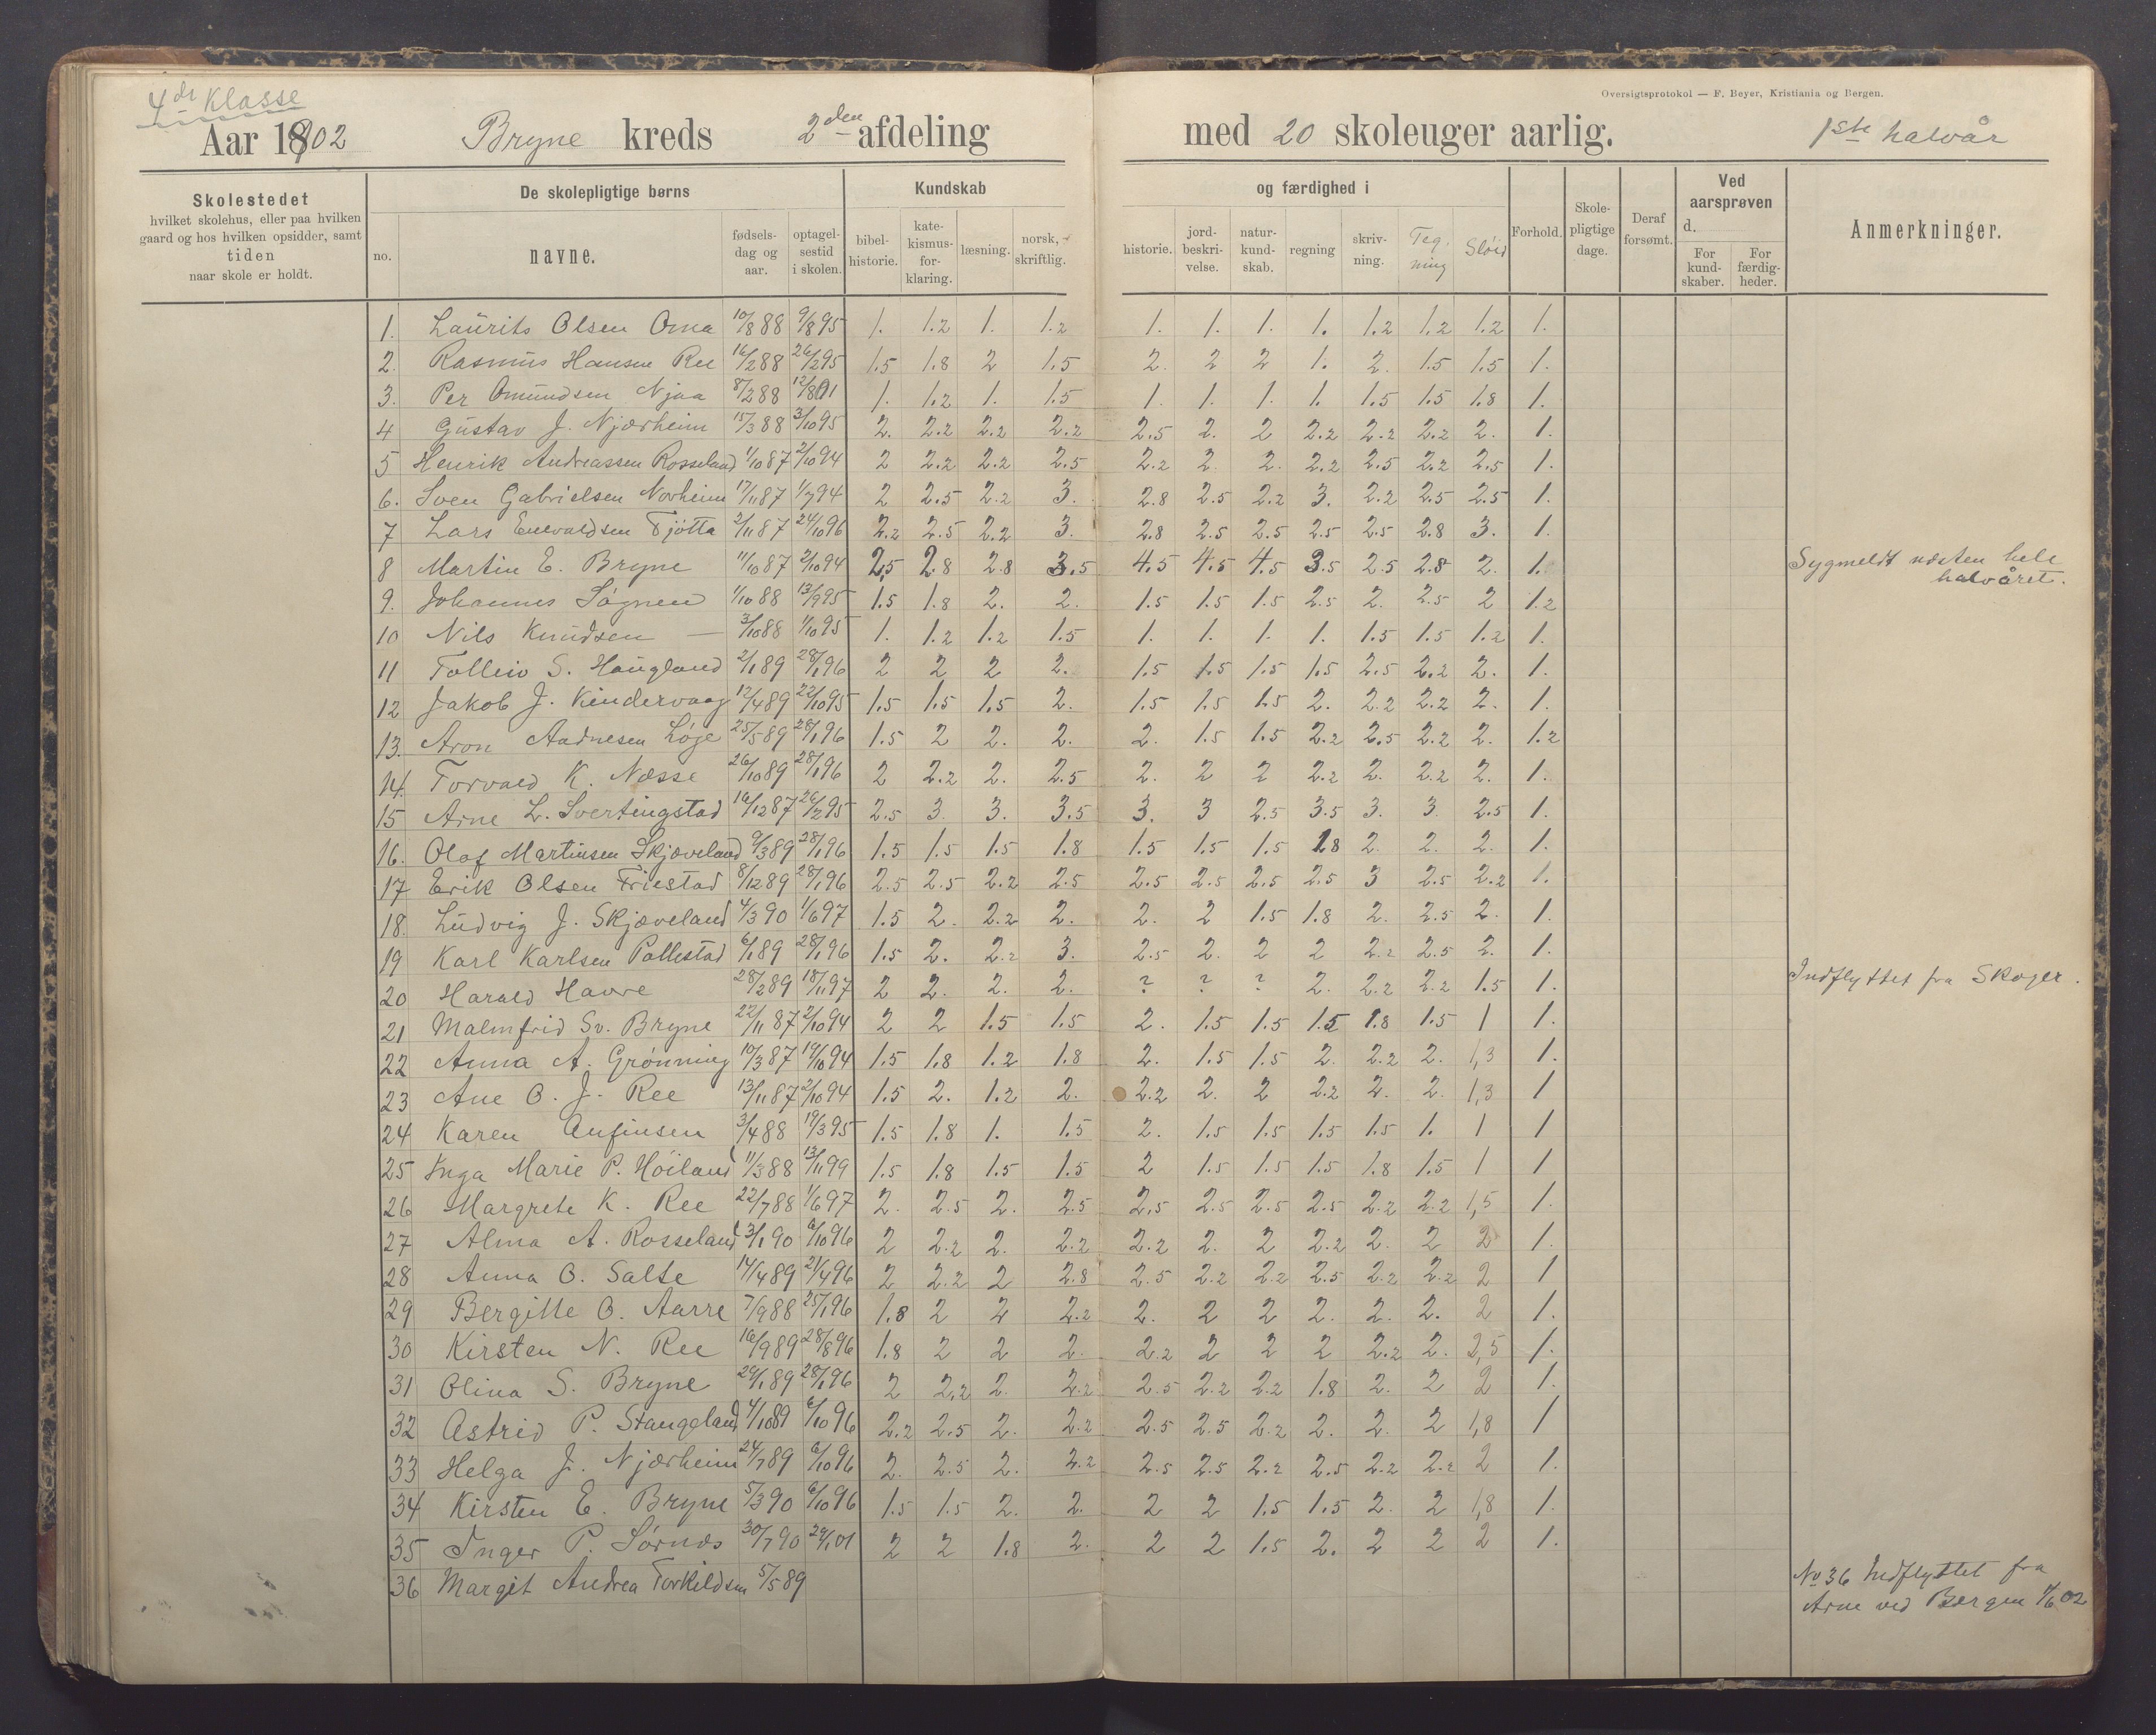 4de Klasse
Oversigtsprotokol — F. Beyer, Kristiania og Bergen.
Aar 1902 Bryne kreds 2den afdeling med 20 skoleuger aarlig. 1ste halvår
Skolestedet hvilket skolehus, eller paa hvilken gaard og hos hvilken opsidder, samt tiden naar skole er holdt.
De skolepligtige børns
no. navne. fødsels-dag og aar. optagel-sestid i skolen.
Kundskab og færdighed i
bibel-historie. kate-kismus-for-klaring. læsning. norsk, skriftlig. historie. jord-beskri-velse. natur-kund-skab. regning skriv-ning. Teg-ning Slöid Forhold. Skole-pligtige dage. Deraf forsømt. Ved aarsprøven d. For kund-skaber. For færdig-heder. Anmerkninger.
1. Laurits Olsen Oma 10/8 88 9/8 95 1. 1.2 1. 1.2 1. 1. 1. 1. 1.2 1.2 1.2 1.
2. Rasmus Hansen Ree 16/2 88 26/2 95 1.5 1.8 2 1.5 2. 2 2 1. 2. 1.5 1.5 1.
3. Per Omundsen Njaa 8/2 88 12/8 01 1. 1.2 1. 1.5 1. 1. 1. 1. 1.5 1.5 1.8 1.
4 Gustav J. Njærheim 15/3 88 3/10 95 2. 2.2 2.2 2.2 2.5 2. 2 2.2 2.2 2.2 2. 1.
5 Henrik Andreassen Rosseland 1/10 87 2/10 94 2 2.2 2.2 2.5 2.2 2 2. 2.2 2.5 2.2 2.5 1.
6. Sven Gabrielsen Norheim 17/11 87 1/7 94 2 2.5 2.2 3. 2.8 2.5 2.2 3. 2.2 2.5 2.5 1.
7 Lars Enevaldsen Tjötta 2/11 87 24/10 96 2.2 2.5 2.2 3. 2.8 2.5 2.5 2.5 2.5 2.8 3. 1.
8 Martin E. Bryne 11/10 87 2/10 94 2.5 2.8 2.8 3.5 4.5 4.5 4.5 3.5 2.5 2.8 2. 1. Sygmeldt næsten hele
halvåret.
9. Johannes Søgnen 1/10 88 13/9 95 1.5 1.8 2. 2. 1.5 1.5 1.5 2.5 2. 2.5 2 1.2
10 Nils Knudsen — 3/10 88 1/10 95 1. 1.2 1.2 1.5 1. 1. 1. 1. 1.5 1.5 1.2 1.
11 Tolleiv S. Haugland 2/1 89 28/1 96 2 2 2 2. 1.5 1.5 1.5 1.5 2.5 2.2 2. 1.
12 Jakob J. Kindervaag 12/4 89 22/10 95 1.5 1.5 1.5 2. 1.5 1.5 1.5 2. 2.2 2.2 2. 1.
13. Aron Aadnesen Löge 25/5 89 28/1 96 1.5 2 2. 2. 2. 1.5 1.5 2.2 2.5 2.2 2. 1.2
14. Torvald K. Næsse 26/10 89 28/1 96 2 2.2 2. 2.5 2. 2 2 2.2 2. 2.2 2. 1.
15 Arne L. Svertingstad 16/12 87 26/2 95 2.5 3. 3. 3.5 3. 3 2.5 3.5 3. 3. 2.5 1.
16. Olaf Martinsen Skjæveland 9/3 89 28/1 96 1.5 1.5 1.5 1.8 1.5 1.5 1.5 1.8 2. 2. 2. 1.
17 Erik Olsen Friestad 8/12 89 28/1 96 2.5 2.5 2.2 2.5 2.5 2.5 2.5 2.5 3 2.5 2.2 1.
18. Ludvig J. Skjæveland 4/3 90 1/6 97 1.5 2. 2.2 2. 2. 2 1.5 1.8 2. 2.5 2. 1.
19 Karl Karlsen Pollestad 6/1 89 28/1 96 1.5 2. 2.2 3. 2.5 2. 2 2 2.2 2.5 2. 1.
20 Harald Havre 28/2 89 18/11 97 2 2. 2. 2. ? ? ? 2. 2.2 2.2 1.5 1. Indflyttet fra Skoger.
21 Malmfrid Sv. Bryne 22/11 87 2/10 94 2 2 1.5 1.5 2. 1.5 1.5 1.5 1.8 1.5 1 1.
22 Anna A. Grönning 10/3 87 19/10 94 1.5 1.8 1.2 1.8 2. 1.5 1.5 2. 2.2 2. 1,3 1.
23 Ane O. J. Ree 13/11 87 2/10 94 1.5 2. 1.2 2. 2.2 2. 2 2.2 2. 2. 1,3 1
24 Karen Anfinsen 3/4 88 19/3 95 1.5 1.8 1. 1.5 2. 1.5 1.5 1.5 1.5 1. 1 1
25 Inga Marie P. Höiland 11/3 88 13/11 99 1.5 1.8 1.5 1.5 2 1.5 1.5 1.5 1.8 1.5 1 1
26 Margrete K. Ree 22/7 88 1/6 97 2. 2.5 2. 2.5 2.5 2.5 2.5 2.5 2.2 2.2 1,5 1.
27 Alma A. Rosseland 3/1 90 6/10 96 2 2.2 2. 2.2 2.2 2. 2 2.2 2. 2 2 1.
28 Anna O. Salte 14/4 89 21/4 96 2 2.2 2 2.8 2.5 2.2 2.2 2.5 2.2 2.2 2 1
29 Bergitte O. Aarre 7/9 88 25/1 96 1.8 2 2 2.2 2. 2 2 2. 2. 2. 2 1.
30 Kirsten N. Ree 16/9 89 28/8 96 1.8 2 2 2. 2.2 2 2 2 2.2 2. 2,5 1.
31 Olina S. Bryne 24/1 89 28/1 96 2 2.2 2. 2.2 2.5 2.2 2.2 1.8 2. 2 2 1.
32 Astrid P. Stangeland 4/10 89 6/10 96 2.2 2.5 2. 2.2 2.5 2.5 2.2 2. 2. 2 1,8 1
33 Helga J. Njærheim 24/7 89 6/10 96 2. 2.5 2. 2.2 2.5 2.5 2.2 2.5 2.2 2.2 2 1.
34 Kirsten E. Bryne 5/3 90 6/10 96 1.5 1.5 2. 2. 2 2 1.5 1.5 2. 2 1,8 1.
35 Inger P. Sörnæs 30/7 90 24/1 01 2 2 1.8 2. 2 2 1.5 2. 2 2 2 1.
36 Margit Andrea Torkildsen 5/5 89 No 36 Indflyttet fra
Arne ved Bergen 4/6 02